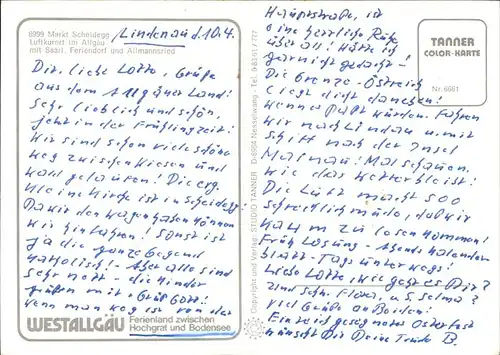 8999 Markt Scheidegg
Luftkurort im Allgäu
mit Saarl. Feriendorf und Allmannsried
Lindenau d. 10.4.
Dir, liebe Lotte, Grüße
aus dem Allgäuer Land!
Sehr lieblich und schön,
jetzt in der Frühlingszeit!
Wir sind schon viel schöne
Weg zwischen Wiesen und
Wald gelaufen! Die erg.
Kleine Kirche ist in Scheidegg!
Da wir den Wagen haben können
wir hinfahren! Sonst ist
ja die ganze Gegend
katholisch! Aber alle sind
sehr nett - die Kinder
grüßen mit "Grüß Gott"!
wenn man weg ist von der
WESTALLGÄU
Ferienland zwischen
Hochgrat und Bodensee
Copyright und Verlag: STUDIO TANNER D-8964 Nesselwang · Tel. 08361/777
TANNER
COLOR-KARTE
Nr. 6661
Hauptstraße, ist
eine herrliche Ruhe
überall! Hätte ich
garnicht gedacht!
Die Grenze - Östreich
liegt dicht daneben!
Wenns paßt würden fahren
wir nach Lindau u. mit
Schiff nach der Insel
Mainau! Mal schauen.
wie das Wetter bleibt!
Die Luft macht so
schrecklich müde, daß wir
kaum zu lesen kommen!
Früh Losung - Abends Kalender
blatt - Tags unterwegs!
Liebe Lotte, wie geht es Dir?
Und Schw. Flora, u. S. Selma?
viel Grüße an Beiden!
Ein reich gesegnetes Osterfest
wünscht Dir Deine Trude B.